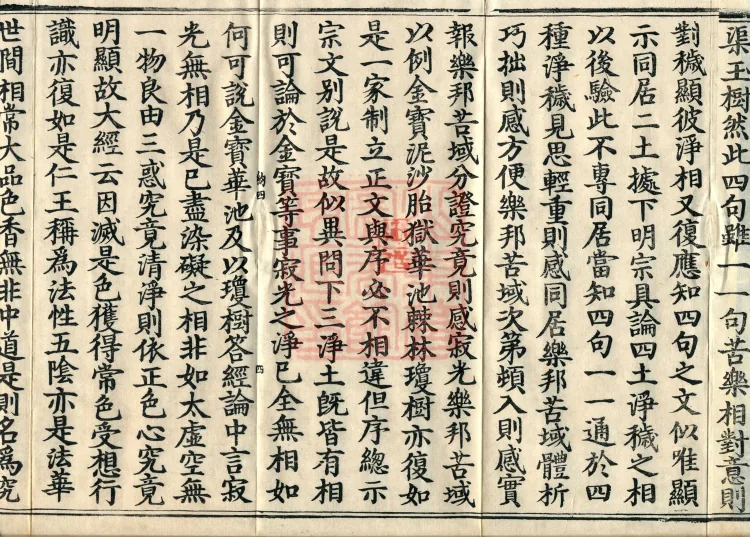 渠王樹然此四句雖一一句苦樂相對意則
對穢顯彼淨相又復應知四句之文似唯顯
示同居二土據下明宗具論四土淨穢之相
以後驗此不專同居當知四句一一通於四
種淨穢見思輕重則感同居樂邦苦域體析
巧拙則感方便樂邦苦域次第頓入則感實
報樂邦苦域分證究竟則感寂光樂邦苦域
以例金寶泥沙胎獄華池棘林瓊樹亦復如
是一家制立正文與序必不相違但序總示
宗文別說是故似異問下三淨土既皆有相
則可論於金寶等事寂光之淨已全無相如
約四
四
何可說金寶華池及以瓊樹答經論中言寂
光無相乃是已盡染礙之相非如太虛空無
一物良由三惑究竟清淨則依正色心究竟
明顯故大經云因滅是色獲得常色受想行
識亦復如是仁王稱為法性五陰亦是法華
世間相常大品色香無非中道是則名為究